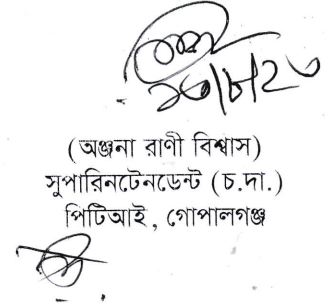 (অঞ্জনা রাণী বিশ্বাস)
সুপারিনটেনডেন্ট (চ.দা.)
পিটিআই, গোপালগঞ্জ